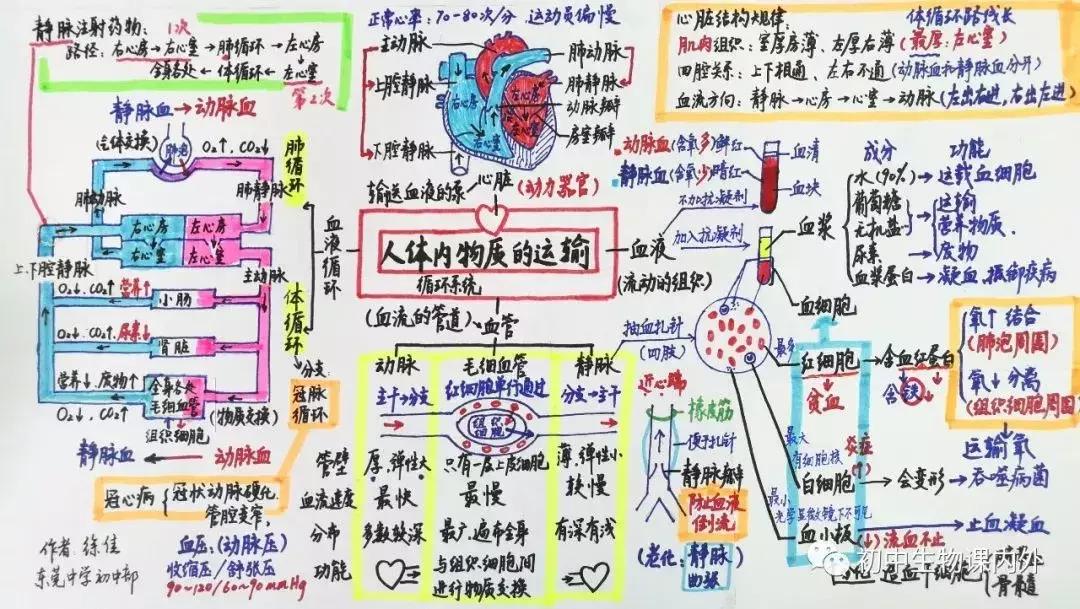 静脉注射药物: 1次
路径: 右心房→右心室→肺循环→左心房
全身各处←体循环←左心室
第2次
静脉血→动脉血
(气体交换)
肺泡
O₂↑、CO₂↓
肺动脉
肺静脉
肺循环
右心房
左心房
右心室
左心室
上、下腔静脉
主动脉
O₂↓、CO₂↑ 营养↑
小肠
O₂↓、CO₂↑、尿素↓
肾脏
营养↓、废物↑
全身各处
毛细血管
O₂↓、CO₂↑
组织细胞
(物质交换)
静脉血←动脉血
体循环
血液循环
分支:
冠脉循环
冠心病
冠状动脉硬化、
管腔变窄,
作者: 徐佳
东莞中学初中部
血压: (动脉压)
收缩压/舒张压
90~120/60~90mmHg
正常心率: 70-80次/分 运动员偏慢
主动脉
上腔静脉
下腔静脉
肺动脉
肺静脉
动脉瓣
房室瓣
右心房
左心房
右心室
左心室
输送血液的泵
心脏
(动力器官)
人体内物质的运输
循环系统
(血流的管道)
血管
动脉
毛细血管
静脉
主干→分支
红细胞单行通过
分支→主干
组织细胞
管壁
厚,弹性大
只有一层上皮细胞
薄,弹性小
血流速度
最快
最慢
较慢
分布
多数较深
最广,遍布全身
有深有浅
功能
与组织细胞间
进行物质交换
心脏结构规律:
体循环路线长
肌肉组织: 室厚房薄、左厚右薄(最厚:左心室)
四腔关系: 上下相通、左右不通(动脉血和静脉血分开)
血流方向: 静脉→心房→心室→动脉(左出右进,右出左进)
动脉血(含氧多)鲜红
静脉血(含氧少)暗红
血液
(流动的组织)
不加抗凝剂
加入抗凝剂
血清
血块
血浆
血细胞
成分
功能
水(90%)→运载血细胞
葡萄糖
无机盐
尿素
运输
营养物质、
废物
血浆蛋白→凝血,抵御疾病
抽血扎针
(四肢)
近心端
橡皮筋
便于扎针
静脉瓣
防止血液
倒流
(老化:静脉
曲张
最多
红细胞
贫血
含血红蛋白
含铁
氧↑ 结合
(肺泡周围)
氧↓ 分离
(组织细胞周围)
运输氧
最大
有细胞核
炎症
(↑)
白细胞
会变形→吞噬病菌
最小,
光学显微镜下不可见
血小板
(↓)流血不止
止血凝血
造血干细胞
骨髓
初中生物课内外